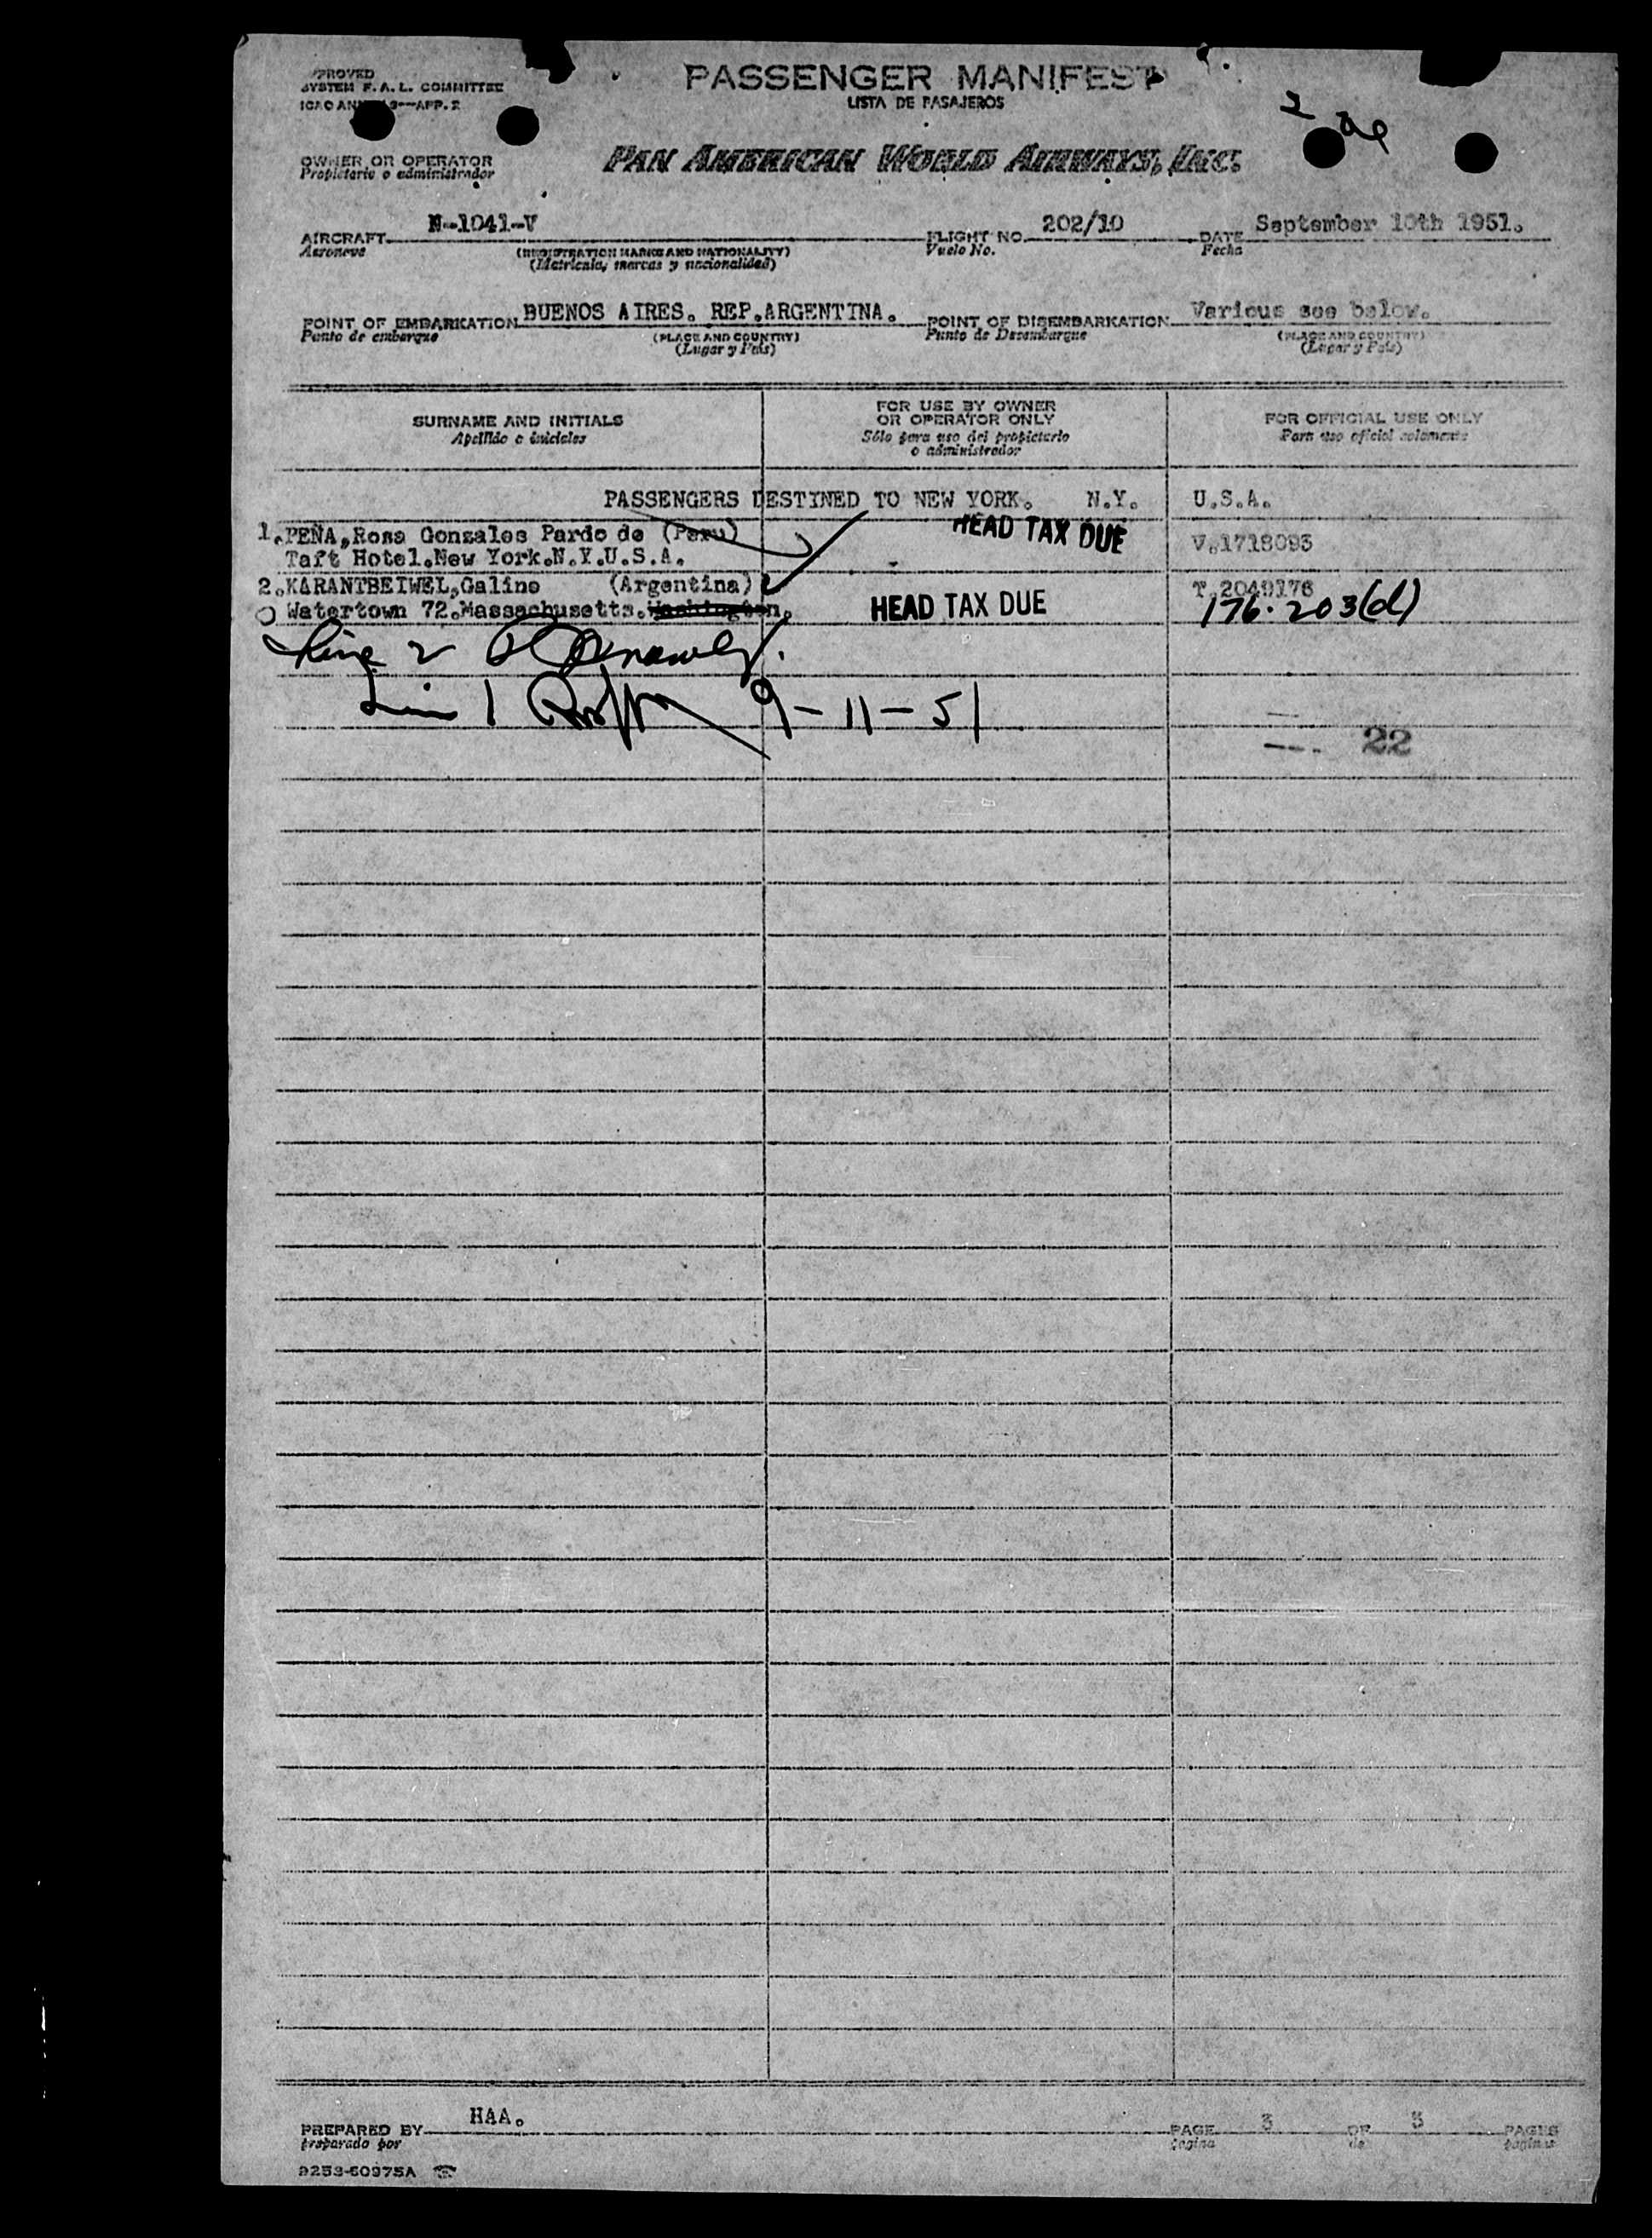 PROVED
SYSTEM F. A. L. COMMITTEE
ICAO ANN 9—APP. 2
PASSENGER MANIFEST
LISTA DE PASAJEROS
2
OWNER OR OPERATOR
Propietario o administrador
PAN AMERICAN WORLD AIRWAYS, INC.
AIRCRAFT N-1041-V FLIGHT NO. 202/10 DATE September 10th 1951.
Aeronave (REGISTRATION MARKS AND NATIONALITY) Vuelo No. Fecha
(Matricula, marcas y nacionalidad)
POINT OF EMBARKATION BUENOS AIRES. REP.ARGENTINA. POINT OF DISEMBARKATION Various see below.
Punto de embarque (PLACE AND COUNTRY) Punto de Desembarque (PLACE AND COUNTRY)
(Lugar y País) (Lugar y País)
SURNAME AND INITIALS FOR USE BY OWNER OR OPERATOR ONLY FOR OFFICIAL USE ONLY
Apellido e iniciales Sólo para uso del propietario o administrador Para uso oficial solamente
PASSENGERS DESTINED TO NEW YORK. N.Y. U.S.A.
1.PEÑA,Rosa Gonzales Pardo de (Peru) HEAD TAX DUE V.1718093
Taft Hotel.New York.N.Y.U.S.A.
2.KARANTBEIWEL,Galine (Argentina) T.2049176
Watertown 72.Massachusetts.Washington. HEAD TAX DUE 176.203(d)
Line 2
Line 1 9-11-51
22
PREPARED BY HAA. PAGE 3 OF 3 PAGES
preparado por pagina de paginas
9253-60975A